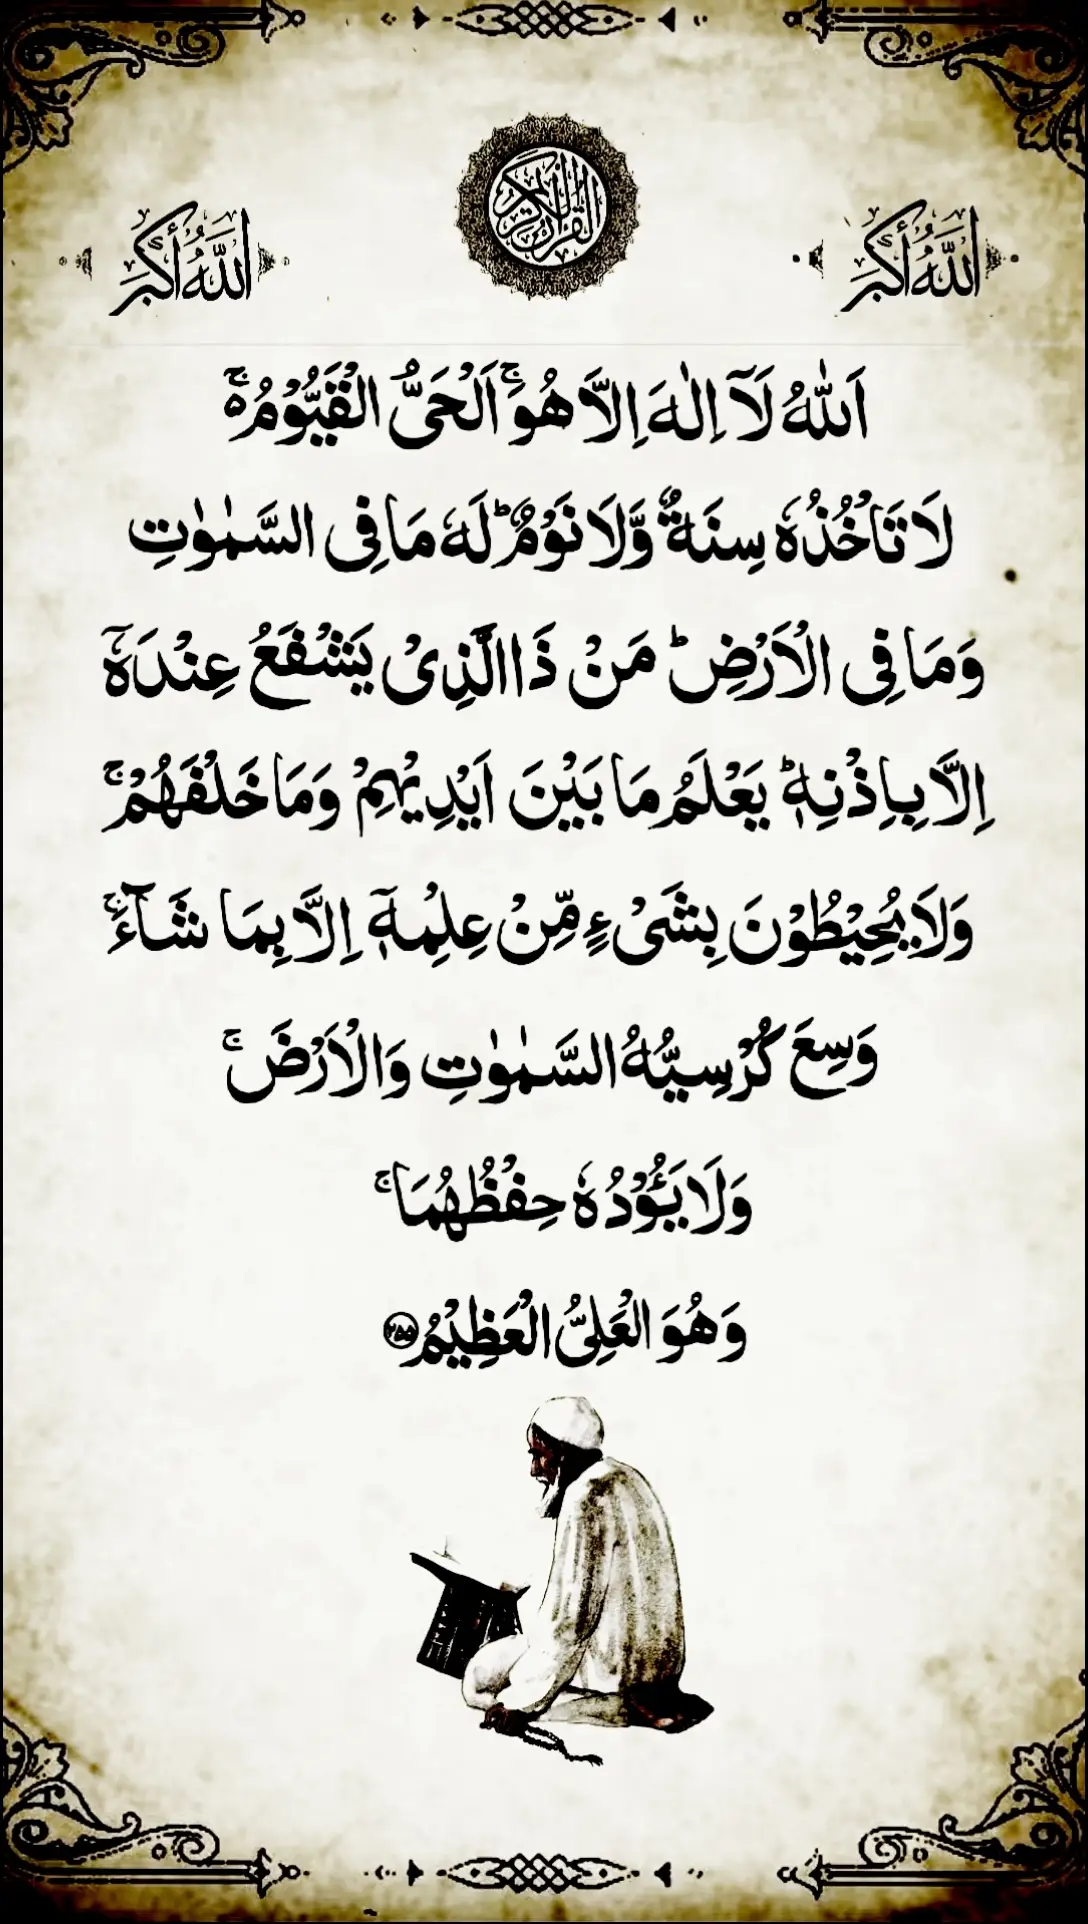 القرآن الكريم
اللَّهُ أَكْبَر
اللَّهُ أَكْبَر
اَللّٰهُ لَاۤ اِلٰهَ اِلَّا هُوَۚ اَلْحَیُّ الْقَیُّوْمُ۬ۚ
لَا تَاْخُذُهٗ سِنَةٌ وَّلَا نَوْمٌؕ لَهٗ مَا فِی السَّمٰوٰتِ
وَمَا فِی الْاَرْضِؕ مَنْ ذَا الَّذِیْ یَشْفَعُ عِنْدَهٗۤ
اِلَّا بِاِذْنِهٖؕ یَعْلَمُ مَا بَیْنَ اَیْدِیْهِمْ وَمَا خَلْفَهُمْۚ
وَلَا یُحِیْطُوْنَ بِشَیْءٍ مِّنْ عِلْمِهٖۤ اِلَّا بِمَا شَآءَۚ
وَسِعَ كُرْسِیُّهُ السَّمٰوٰتِ وَالْاَرْضَۚ
وَلَا یَـُٔوْدُهٗ حِفْظُهُمَاۚ
وَهُوَ الْعَلِیُّ الْعَظِیْمُ ۲۵۵